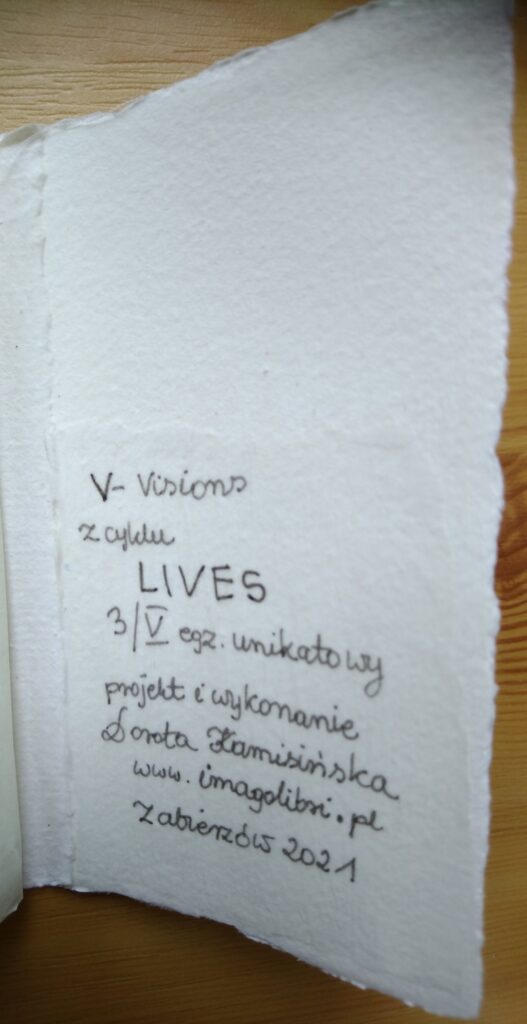 V- Visions
z cyklu
LIVES
3/V egz. unikatowy
projekt i wykonanie
Dorota Kamisińska
www.imagolibri.pl
Zabierzów 2021